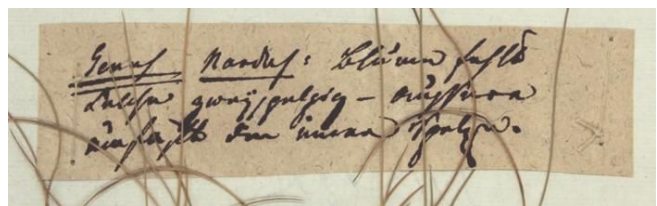 Genus Nardus: Blüme fehlt
Kelche zweÿspelzig – äussere
umfaßt die innere Spelze.